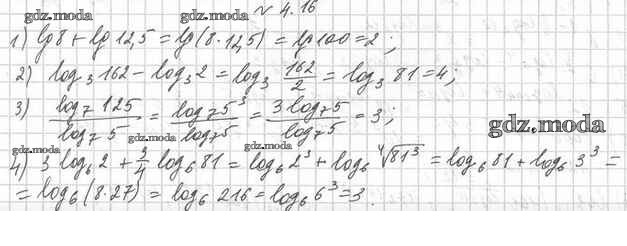 № 4.16
gdz.moda gdz.moda
1) lg 8 + lg 12,5 = lg (8·12,5) = lg 100 = 2;
2) log₃ 162 − log₃ 2 = log₃ 162/2 = log₃ 81 = 4;
3) log₇ 125 / log₇ 5 = log₇ 5³ / log₇ 5 = 3 log₇ 5 / log₇ 5 = 3;
gdz.moda
gdz.moda gdz.moda gdz.moda
4) 3 log₆ 2 + 3/4 log₆ 81 = log₆ 2³ + log₆ ⁴√81³ = log₆ 81 + log₆ 3³ =
= log₆ (8·27) = log₆ 216 = log₆ 6³ = 3.